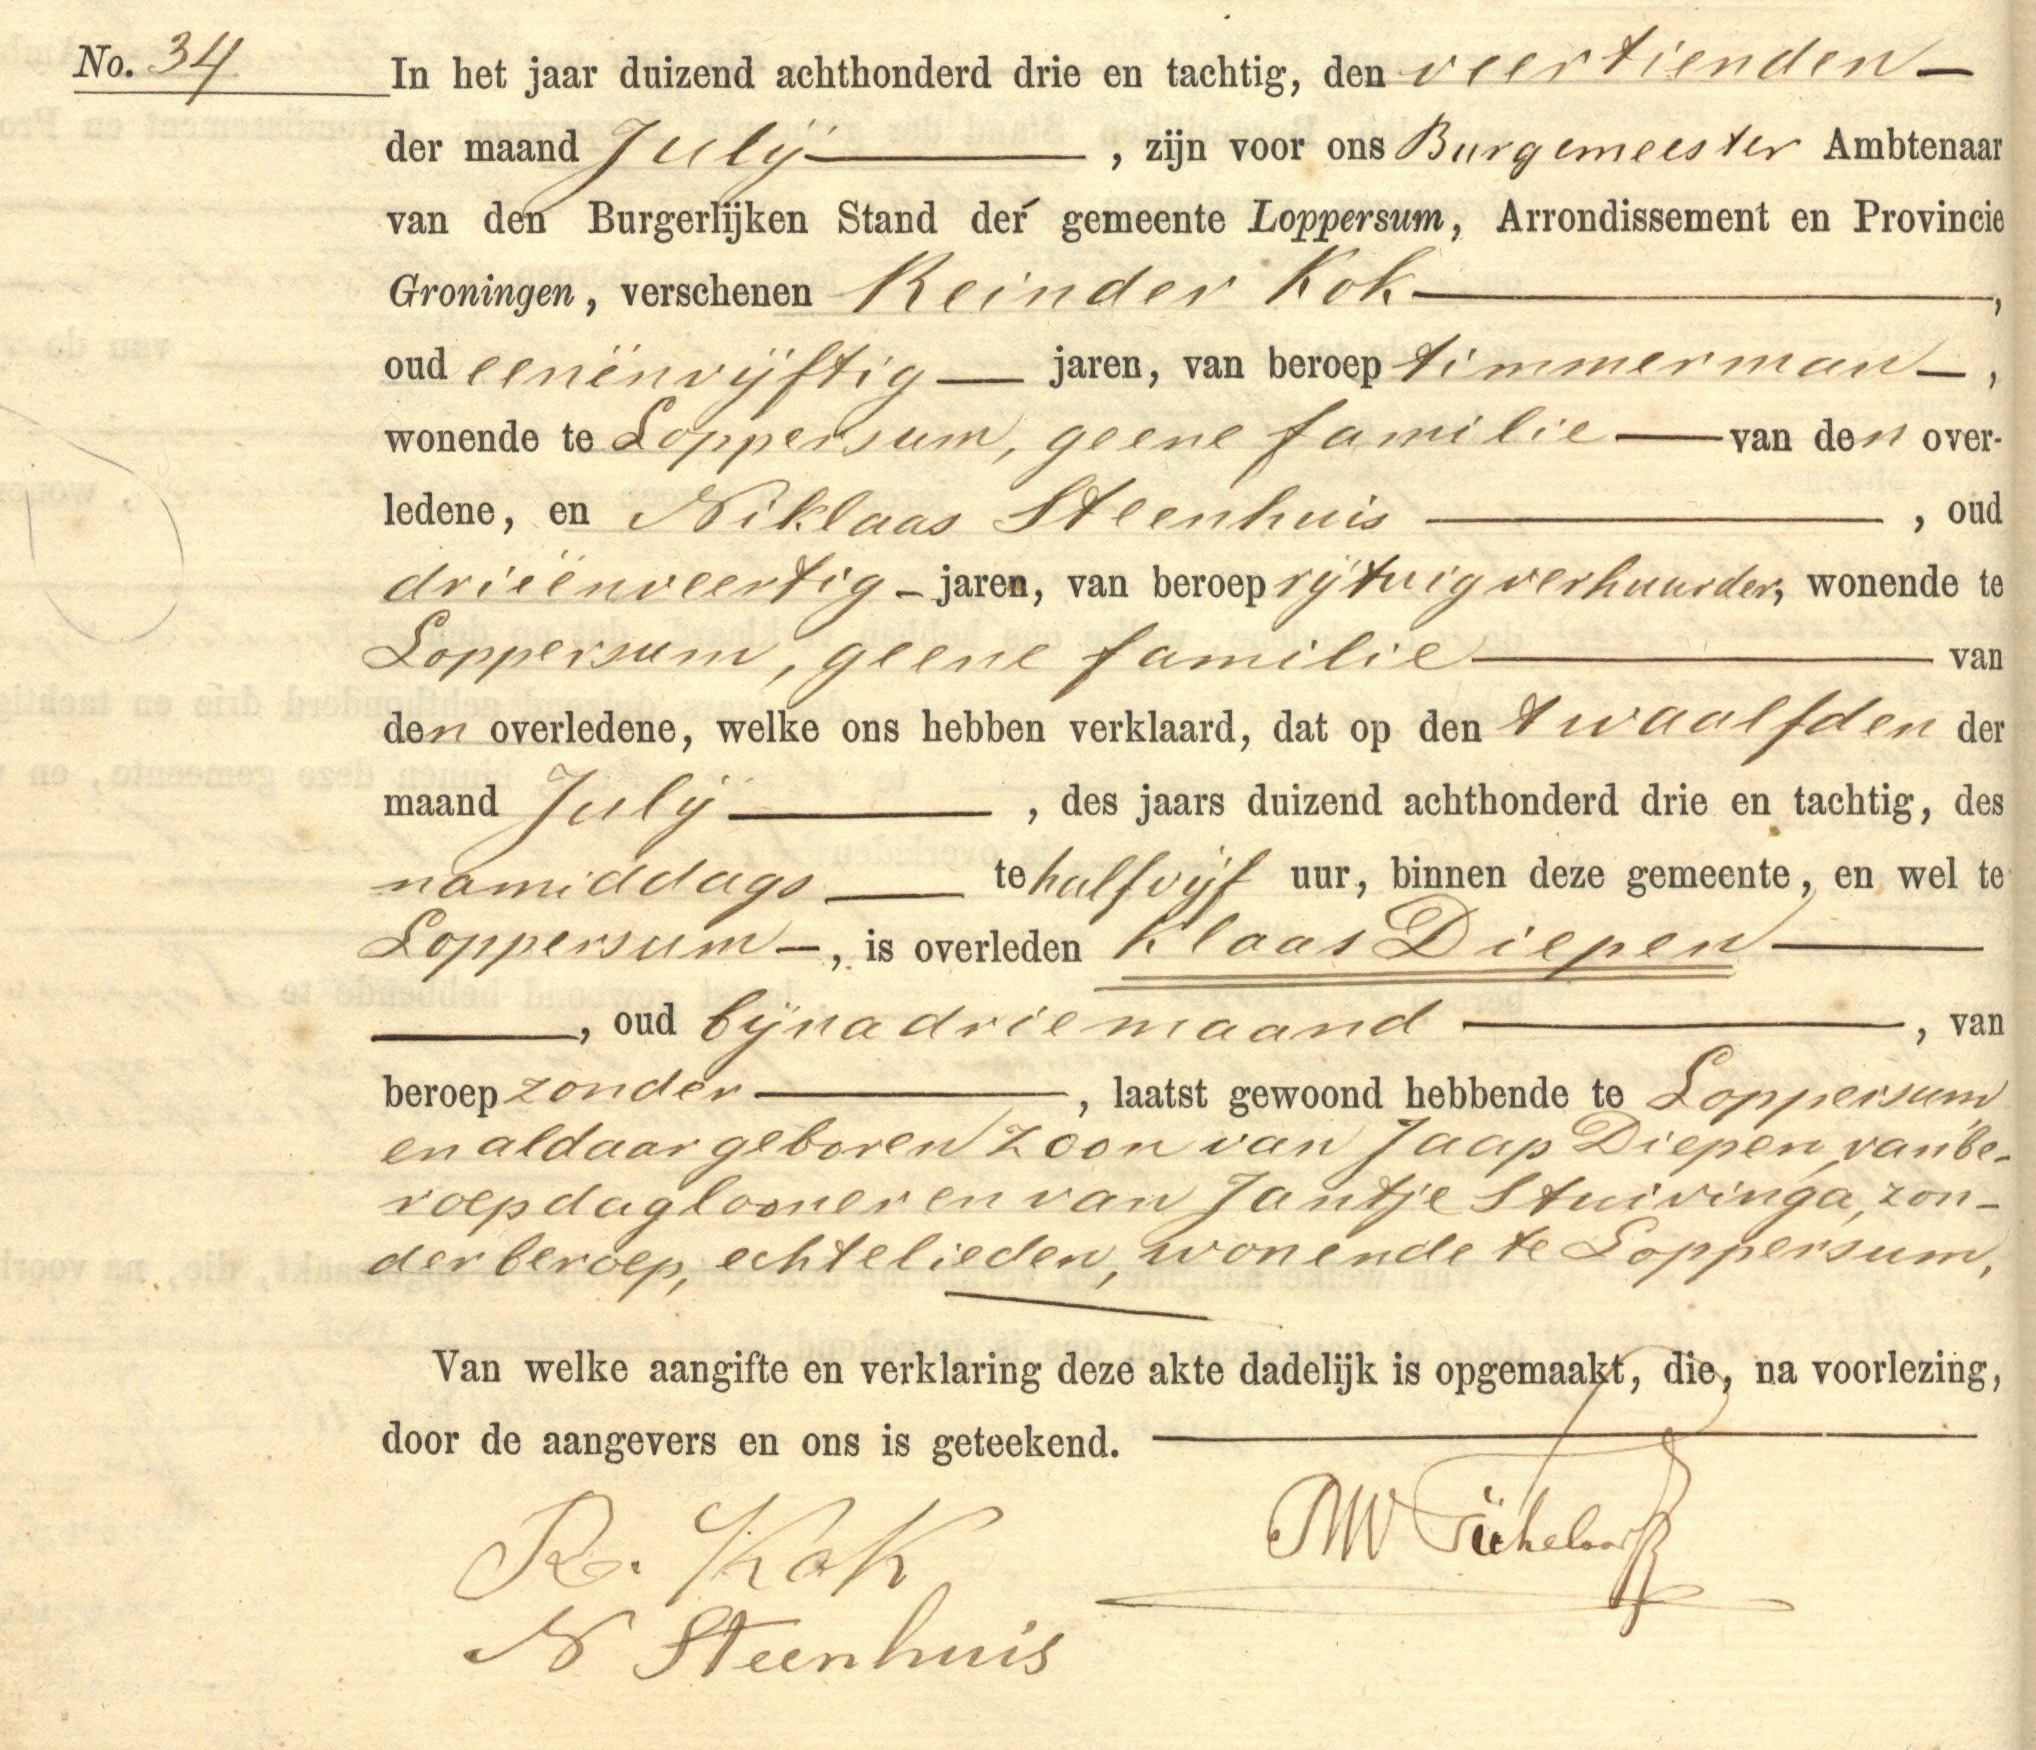 No. 34
In het jaar duizend achthonderd drie en tachtig, den veertienden
der maand Julij, zijn voor ons Burgemeester Ambtenaar
van den Burgerlijken Stand der gemeente Loppersum, Arrondissement en Provincie
Groningen, verschenen Reinder Kok,
oud eenënvijftig jaren, van beroep timmerman,
wonende te Loppersum, geene familie van den over-
ledene, en Niklaas Steenhuis, oud
drieënveertig jaren, van beroep rijtuigverhuurder, wonende te
Loppersum, geene familie van
den overledene, welke ons hebben verklaard, dat op den twaalfden der
maand Julij, des jaars duizend achthonderd drie en tachtig, des
namiddags te half vijf uur, binnen deze gemeente, en wel te
Loppersum, is overleden Klaas Diepen
, oud bijna drie maand, van
beroep zonder, laatst gewoond hebbende te Loppersum
en aldaar geboren zoon van Jaap Diepen, van be-
roep daglooner en van Jantje Stuivinga, zon-
der beroep, echtelieden, wonende te Loppersum,
Van welke aangifte en verklaring deze akte dadelijk is opgemaakt, die, na voorlezing,
door de aangevers en ons is geteekend.
R. Kok
N Steenhuis